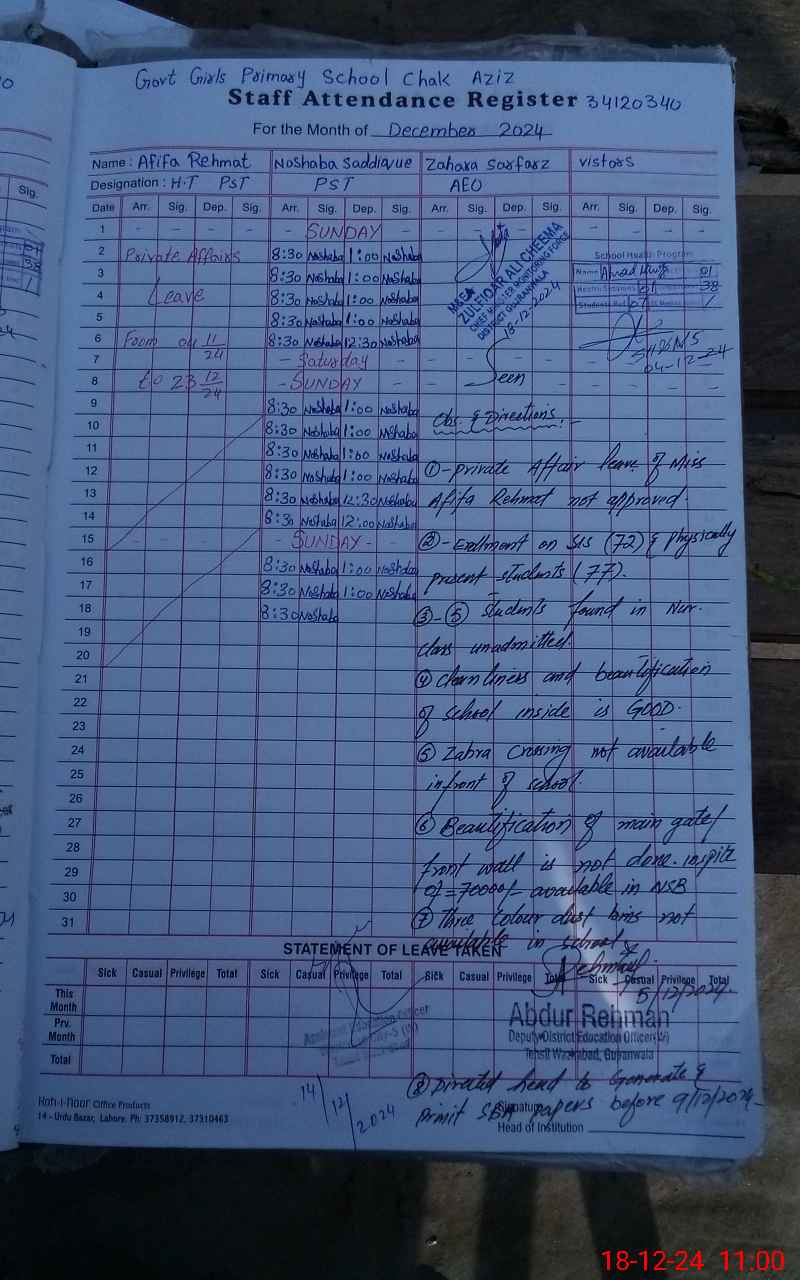 Govt Girls Primary School Chak Aziz
Staff Attendance Register 34120340
For the Month of December 2024
Name : Afifa Rehmat Noshaba Saddique Zahara Sarfarz vistors
Designation : H.T PST PST AEO
Date Arr. Sig. Dep. Sig. Arr. Sig. Dep. Sig. Arr. Sig. Dep. Sig. Arr. Sig. Dep. Sig.
1 - - - - - SUNDAY - - - - - - - -
2 Private Affairs 8:30 Noshaba 1:00 Noshaba
3 8:30 Noshaba 1:00 Noshaba
4 Leave 8:30 Noshaba 1:00 Noshaba
5 8:30 Noshaba 1:00 Noshaba
6 From 04 11/24 8:30 Noshaba 12:30 Noshaba
7 - Saturday
8 to 23 12/24 - SUNDAY - - - - - - -
9 8:30 Noshaba 1:00 Noshaba
10 8:30 Noshaba 1:00 Noshaba
11 8:30 Noshaba 1:00 Noshaba
12 8:30 Noshaba 1:00 Noshaba
13 8:30 Noshaba 12:30 Noshaba
14 8:30 Noshaba 12:00 Noshaba
15 - - - - SUNDAY -
16 8:30 Noshaba 1:00 Noshaba
17 8:30 Noshaba 1:00 Noshaba
18 8:30 Noshaba
19
20
21
22
23
24
25
26
27
28
29
30
31
MEA
ZULFIQAR ALI CHEEMA
CHIEF MINISTER MONITORING FORCE
DISTRICT GUJRANWALA
18-12-2024
Seen
School Health Program
Name 01
Health Sessions 01 38
Students Ref 07 1
SH&NS
04-12-24
Obs. & Directions:-
①-private Affair leave of Miss
Afifa Rehmat not approved.
②-Enrllment on SIS (72) & Physically
present students (77).
③-⑤ students found in Nur.
class unadmitted.
④ cleanliness and beautification
of school inside is GOOD.
⑤ Zabra Crossing not available
infront of school.
⑥ Beautification of main gate/
front wall is not done. inspite
of =70000/- available in NSB
⑦ Three Colour dust bins not
available in school.
5/12/2024.
STATEMENT OF LEAVE TAKEN
Sick Casual Privilege Total Sick Casual Privilege Total Sick Casual Privilege Total Sick Casual Privilege Total
This Month
Prv. Month
Total
Assistant Education Officer
Abdur Rehman
Deputy District Education Officer
Tehsil Wazirabad, Gujranwala
14/12/2024
⑧ Directed head to Generate &
Primit SBA papers before 9/12/2024
Koh-I-Noor Office Products
14 - Urdu Bazar, Lahore. Ph: 37358912, 37310463
Signature
Head of Institution
18-12-24 11:00